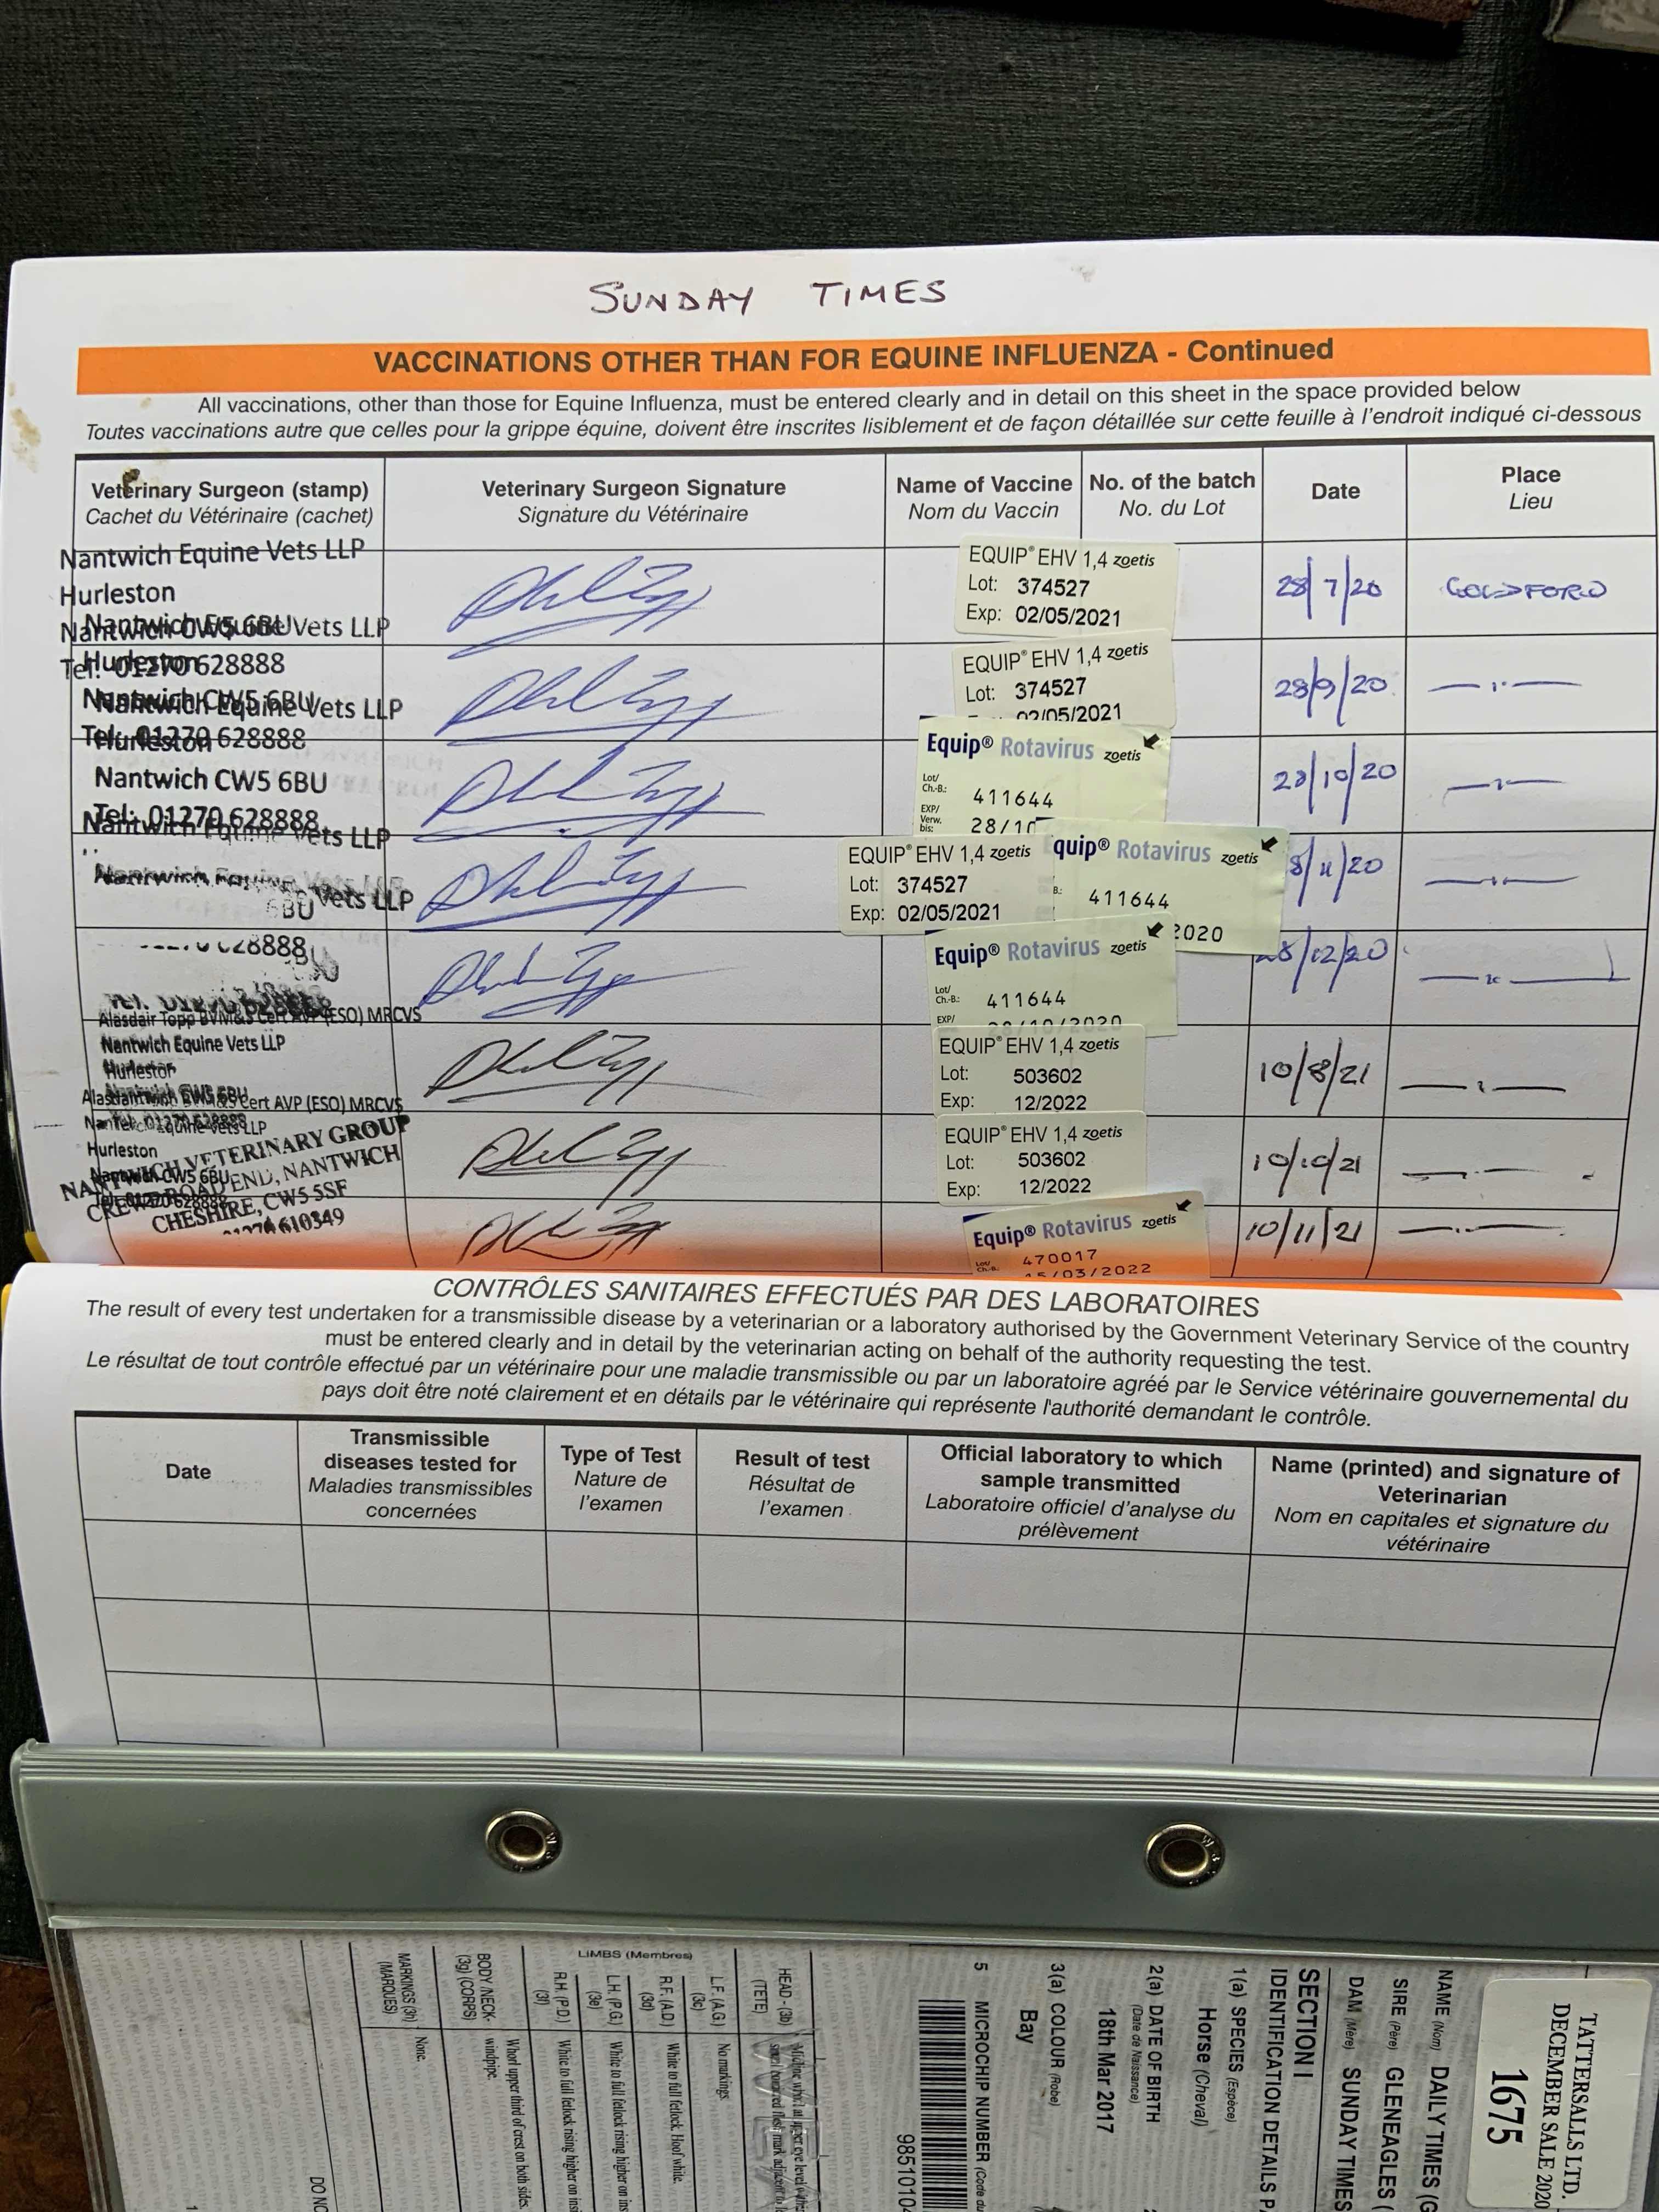 SUNDAY TIMES
VACCINATIONS OTHER THAN FOR EQUINE INFLUENZA - Continued
All vaccinations, other than those for Equine Influenza, must be entered clearly and in detail on this sheet in the space provided below
Toutes vaccinations autre que celles pour la grippe équine, doivent être inscrites lisiblement et de façon détaillée sur cette feuille à l'endroit indiqué ci-dessous
Veterinary Surgeon (stamp)
Cachet du Vétérinaire (cachet)
Veterinary Surgeon Signature
Signature du Vétérinaire
Name of Vaccine
Nom du Vaccin
No. of the batch
No. du Lot
Date
Place
Lieu
Nantwich Equine Vets LLP
Hurleston
Nantwich CW5 6BU
Tel: 01270 628888
EQUIP® EHV 1,4 zoetis
Lot: 374527
Exp: 02/05/2021
28/7/20
GOLDFORD
Nantwich Equine Vets LLP
Hurleston
Nantwich CW5 6BU
Tel: 01270 628888
EQUIP® EHV 1,4 zoetis
Lot: 374527
02/05/2021
28/9/20
Nantwich Equine Vets LLP
Hurleston
Nantwich CW5 6BU
Tel: 01270 628888
Equip® Rotavirus zoetis
Lot/
Ch.-B.: 411644
EXP/
Verw.
bis: 28/10
/10/20
Nantwich Equine Vets LLP
EQUIP® EHV 1,4 zoetis
Lot: 374527
Exp: 02/05/2021
quip® Rotavirus zoetis
B.: 411644
2020
8/11/20
Vets LLP
6BU
28888
Equip® Rotavirus zoetis
Lot/
Ch.-B.: 411644
EXP/ 28/10/2020
8/12/20
Alasdair Topp BVM&S Cert AVP (ESO) MRCVS
Nantwich Equine Vets LLP
Hurleston
Nantwich CW5 6BU
Tel: 01270 628888
EQUIP® EHV 1,4 zoetis
Lot: 503602
Exp: 12/2022
10/8/21
Alasdair BVM&S Cert AVP (ESO) MRCVS
Equine Vets LLP
Hurleston
Nantwich CW5 6BU
Tel: 01270 628888
EQUIP® EHV 1,4 zoetis
Lot: 503602
Exp: 12/2022
10/10/21
NANTWICH VETERINARY GROUP
CREWE ROAD END, NANTWICH
CHESHIRE, CW5 5SF
01270 610349
Equip® Rotavirus zoetis
Lot/
Ch.-B.: 470017
15/03/2022
10/11/21
CONTRÔLES SANITAIRES EFFECTUÉS PAR DES LABORATOIRES
The result of every test undertaken for a transmissible disease by a veterinarian or a laboratory authorised by the Government Veterinary Service of the country
must be entered clearly and in detail by the veterinarian acting on behalf of the authority requesting the test.
Le résultat de tout contrôle effectué par un vétérinaire pour une maladie transmissible ou par un laboratoire agréé par le Service vétérinaire gouvernemental du
pays doit être noté clairement et en détails par le vétérinaire qui représente l'authorité demandant le contrôle.
Date
Transmissible
diseases tested for
Maladies transmissibles
concernées
Type of Test
Nature de
l'examen
Result of test
Résultat de
l'examen
Official laboratory to which
sample transmitted
Laboratoire officiel d'analyse du
prélèvement
Name (printed) and signature of
Veterinarian
Nom en capitales et signature du
vétérinaire
TATTERSALLS LTD.
DECEMBER SALE 2020
1675
NAME (Nom) DAILY TIMES (G
SIRE (Père) GLENEAGLES (
DAM (Mère) SUNDAY TIMES
SECTION I
IDENTIFICATION DETAILS PA
1(a) SPECIES (Espèce)
Horse (Cheval)
2(a) DATE OF BIRTH
(Date de Naissance)
18th Mar 2017
3(a) COLOUR (Robe)
Bay
5 MICROCHIP NUMBER (Code du
9851010
HEAD - (3b)
(TETE)
LIMBS (Membres)
L.F. (A.G.)
(3c)
No markings.
R.F. (A.D.)
(3d)
White to full fetlock. Hoof white.
L.H. (P.G.)
(3e)
White to full fetlock rising higher on ins
R.H. (P.D.)
(3f)
White to full fetlock rising higher on insi
BODY/NECK-
(3g) (CORPS)
Whorl upper third of crest on both sides.
windpipe.
MARKINGS (3h)
(MARQUES)
None.
DO NO